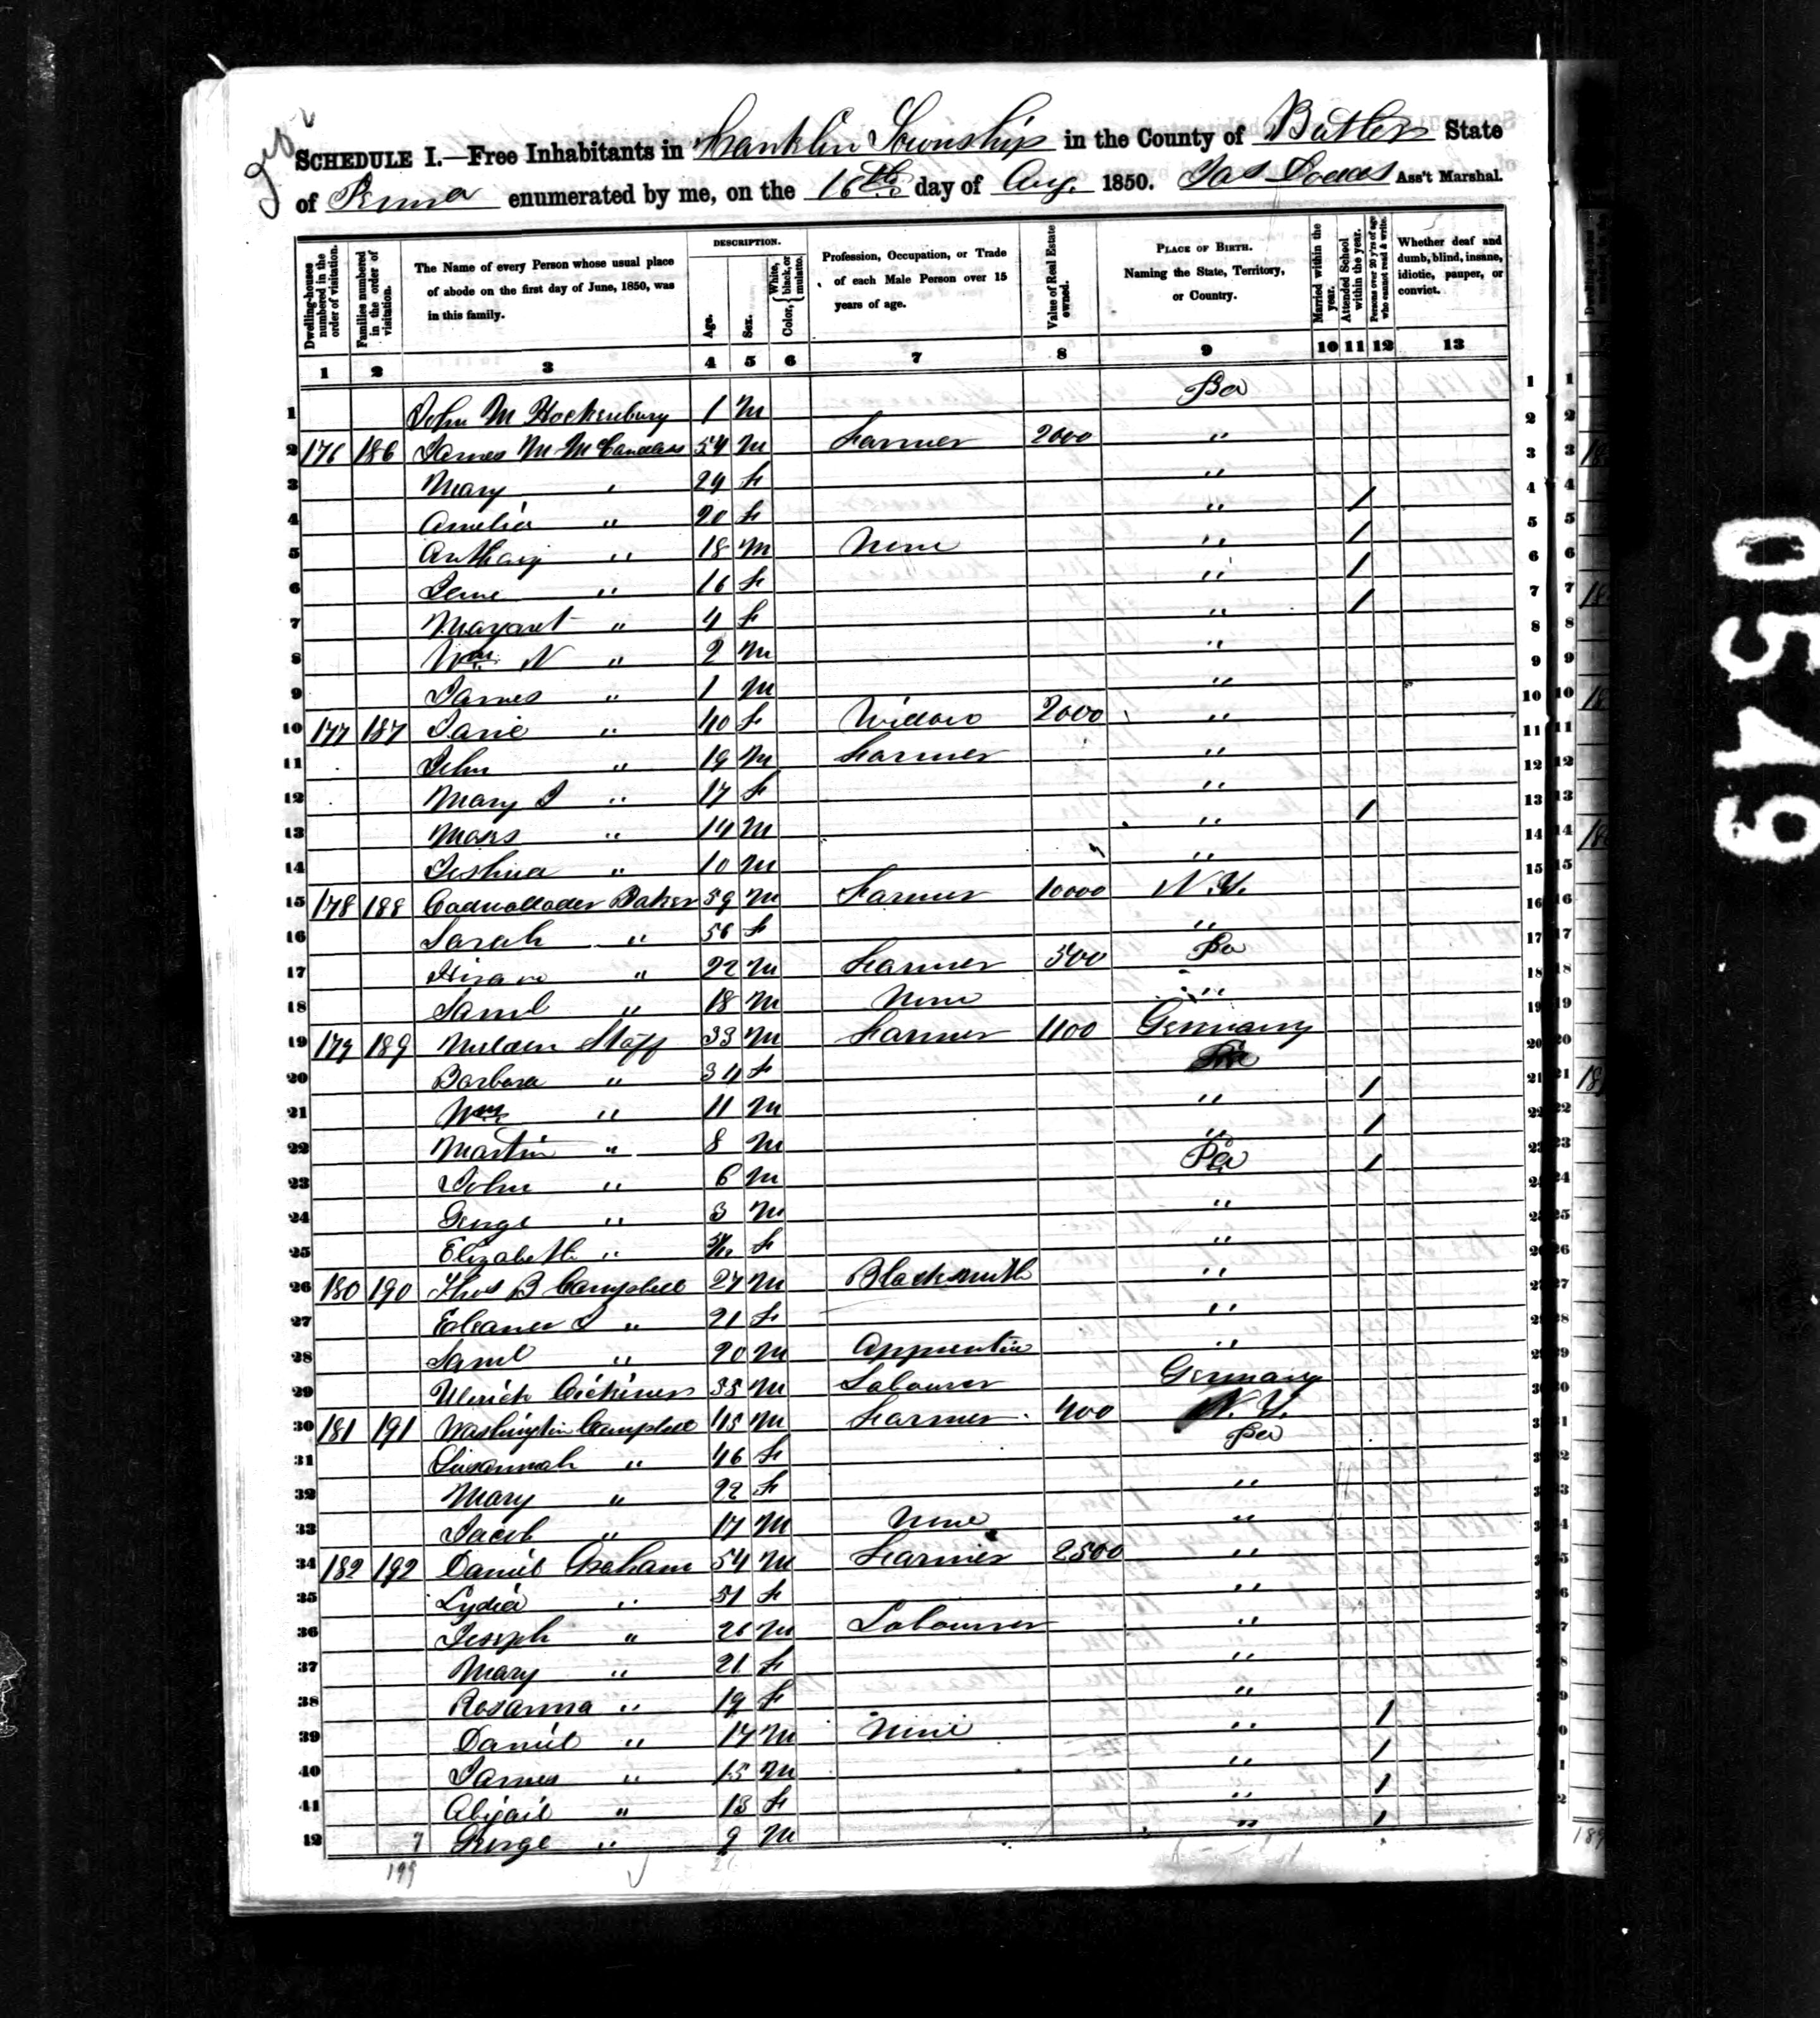 SCHEDULE I.—Free Inhabitants in Franklin Township in the County of Butler State
of Penna enumerated by me, on the 16th day of Aug. 1850. Jas Ass't Marshal.
Dwelling-houses numbered in the order of visitation.
Families numbered in the order of visitation.
The Name of every Person whose usual place of abode on the first day of June, 1850, was in this family.
DESCRIPTION.
Age.
Sex.
Color, { White, black, or mulatto.
Profession, Occupation, or Trade of each Male Person over 15 years of age.
Value of Real Estate owned.
PLACE OF BIRTH. Naming the State, Territory, or Country.
Married within the year.
Attended School within the year.
Persons over 20 y'rs of age who cannot read & write.
Whether deaf and dumb, blind, insane, idiotic, pauper, or convict.
1 2 3 4 5 6 7 8 9 10 11 12 13
1 John M Hockenbury 1 M Pa 1
2 176 186 James M McCandless 54 M Farmer 2000 " 2
3 Mary " 24 F " 3
4 Amelia " 20 F " / 4
5 Anthony " 18 M None " / 5
6 Jane " 16 F " / 6
7 Margaret " 4 F " / 7
8 Wm N " 2 M " 8
9 James " 1 M " 9
10 177 187 Jane " 40 F Widow 2000 " 10
11 John " 19 M Farmer " 11
12 Mary J " 17 F " 12
13 Moses " 14 M " / 13
14 Joshua " 10 M " 14
15 178 188 Cadwallader Baker 59 M Farmer 10000 N.Y. 15
16 Sarah " 56 F " 16
17 Hiram " 22 M Farmer 500 Pa 17
18 Saml " 18 M None " 18
19 179 189 Staff 33 M Farmer 1100 Germany 19
20 Barbara " 34 F 20
21 Wm " 11 M " / 21
22 Martin " 8 M " / 22
23 John " 6 M Pa / 23
24 George " 3 M " 24
25 Elizabeth " F " 25
26 180 190 Thos B Campbell 27 M Blacksmith " 26
27 Eleanor J " 21 F " 27
28 Saml " 20 M Apprentice " 28
29 Ulrich 35 M Labourer Germany 29
30 181 191 Washington Campbell 45 M Farmer 400 N.Y. 30
31 Susannah " 46 F Pa 31
32 Mary " 22 F "
33 Jacob " 17 M None "
34 182 192 Daniel Graham 54 M Farmer 2500 "
35 Lydia " 51 F "
36 Joseph " 26 M Labourer "
37 Mary " 21 F "
38 Rosanna " 19 F "
39 Daniel " 17 M None " /
40 James " 15 M " /
41 Abigail " 13 F " /
42 George " 9 M " /
199
0549